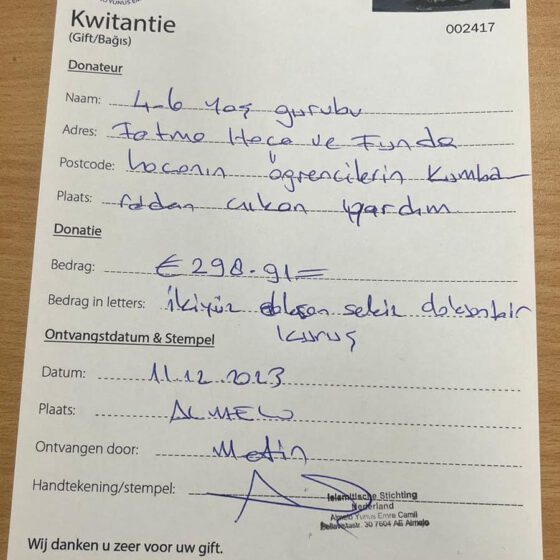 Kwitantie
(Gift/Bağış)
002417
Donateur
Naam: 4-6 yaş gurubu
Adres: Fatma Hoca ve Funda
Postcode: hocanın öğrencilerin Kumba
Plaats: radan çıkan yardım
Donatie
Bedrag: € 298.91=
Bedrag in letters: ikiyüz doksan sekiz doksanbir
kuruş
Ontvangstdatum & Stempel
Datum: 11.12.2023
Plaats: ALMELO
Ontvangen door: Metin
Handtekening/stempel:
Islamitische Stichting
Nederland
Almelo Yunus Emre Camii
30 7604 AE Almelo
Wij danken u zeer voor uw gift.